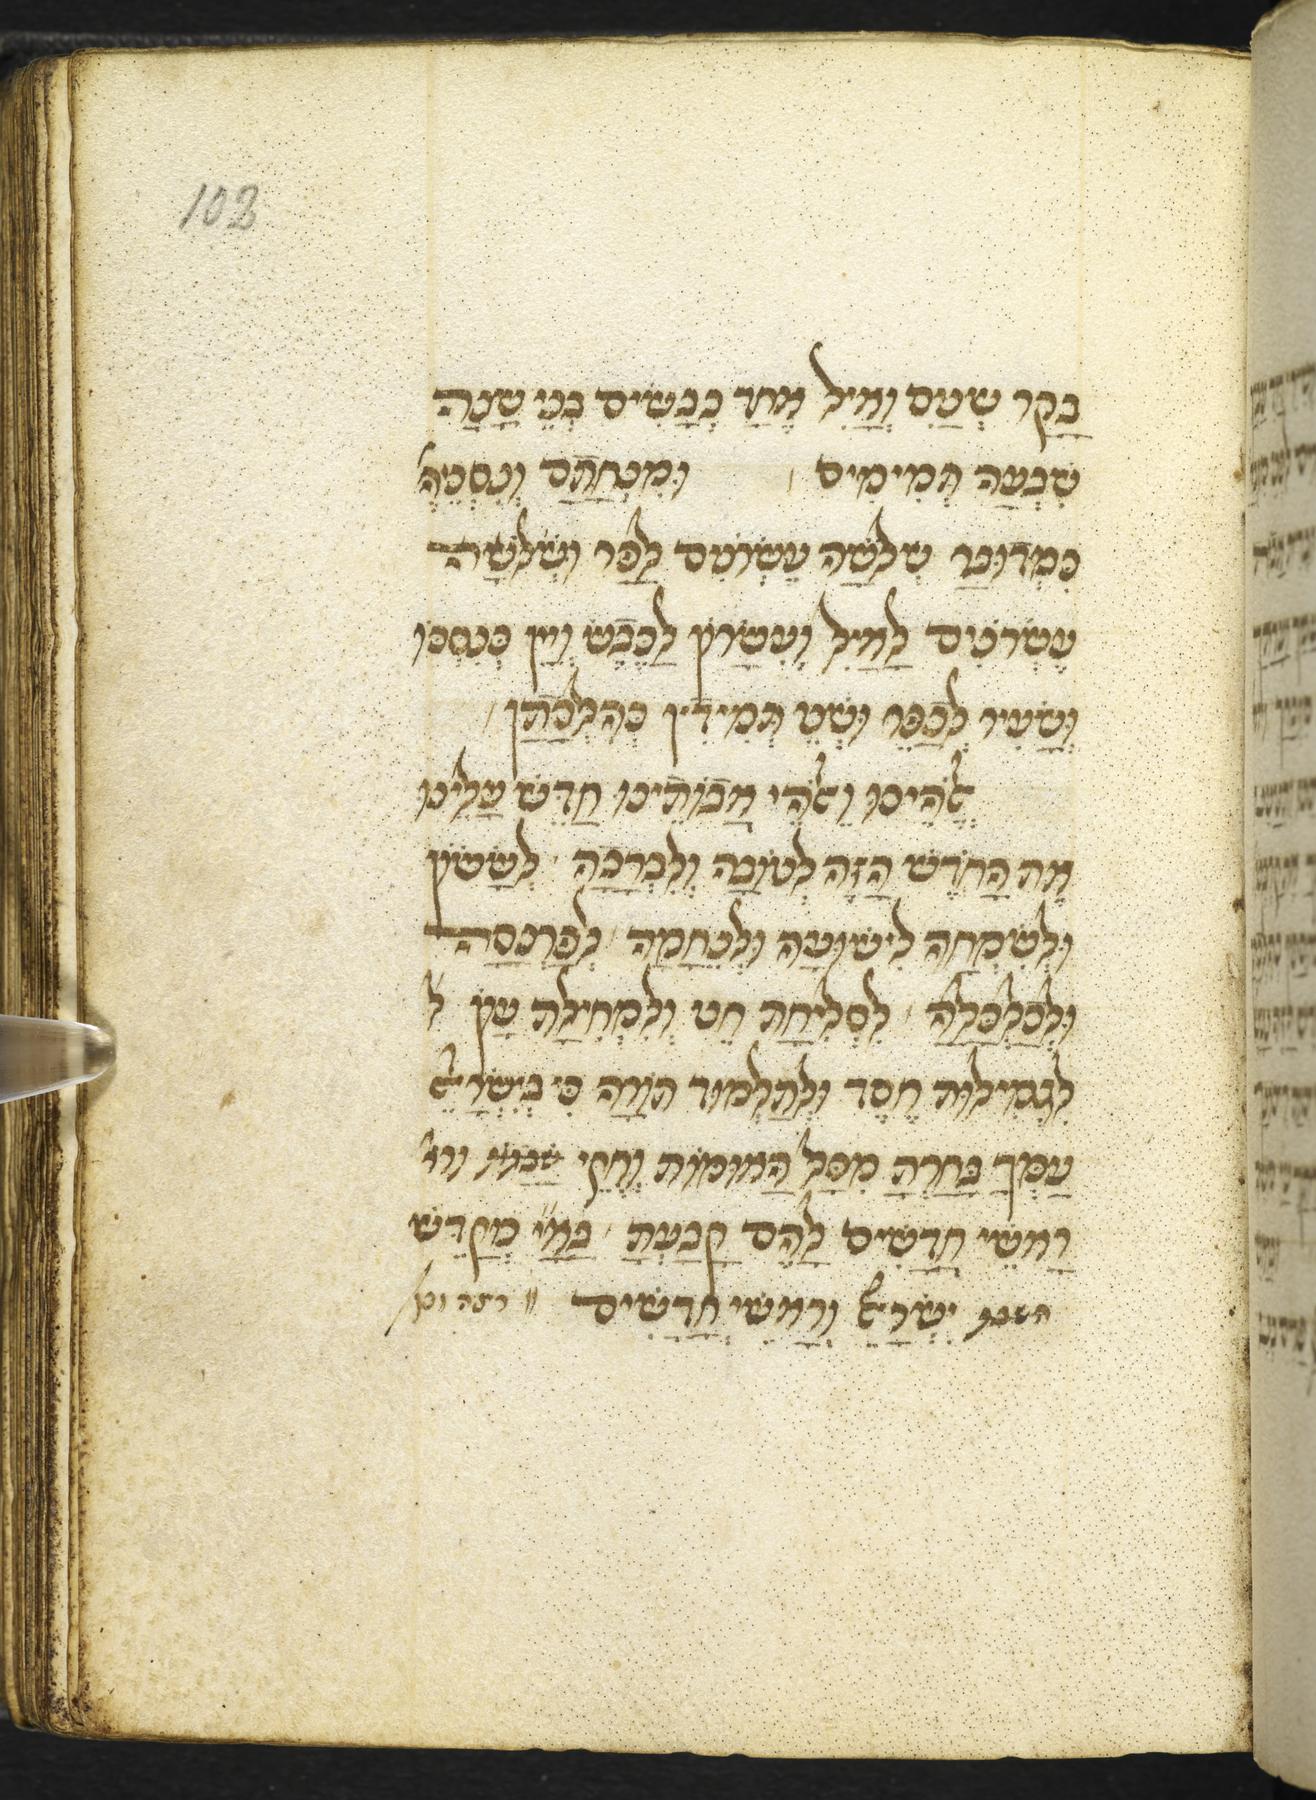 102
בָּקָר שְׁנַיִם וְאַיִל אֶחָד כְּבָשִׂים בְּנֵי שָׁנָה
שִׁבְעָה תְּמִימִים וּמִנְחָתָם וְנִסְכֵּיהֶ
כִּמְדוּבָּר שְׁלֹשָׁה עֶשְׂרֹנִים לַפָּר וּשְׁלֹשָׁה
עֶשְׂרֹנִים לָאַיִל וְעִשָּׂרוֹן לַכֶּבֶשׂ וְיַיִן כְּנִסְכּוֹ
וְשָׂעִיר לְכַפֵּר וּשְׁנֵי תְּמִידִין כְּהִלְכָתָן
אֱלֹהֵינוּ וֵאלֹהֵי אֲבוֹתֵינוּ חַדֵּשׁ עָלֵינוּ
אֶת הַחֹדֶשׁ הַזֶּה לְטוֹבָה וְלִבְרָכָה לְשָׂשׂוֹן
וּלְשִׂמְחָה לִישׁוּעָה וּלְנֶחָמָה לְפַרְנָסָה
וּלְכַלְכָּלָה לִסְלִיחַת חֵט וְלִמְחִילַת עָוֹן ל
לִגְמִילוּת חֶסֶד וּלְתַלְמוּד תּוֹרָה כִּי בְיִשְׂרָאֵל
עַמְּךָ בָּחַרְתָּ מִכָּל הָאוּמּוֹת וְחֻקֵּי
רָאשֵׁי חֳדָשִׁים לָהֶם קָבָעְתָּ בָּאַ"יְ מְקַדֵּשׁ
השבת יִשְׂרָאֵל וְרָאשֵׁי חֳדָשִׁים